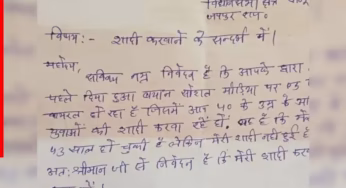 विधानसभा क्षेत्र
जयपुर राज.
विषय:- शादी करवाने के सन्दर्भ में।
महोदय,
सविनय नम्र निवेदन है कि आपके द्वारा
पहले दिया हुआ बयान सोशल मीडिया पर
वायरल हो रहा है जिसमें आप 40 के उम्र के
युवाओं की शादी करवा रहे हो।
43 साल हो चुकी है लेकिन मेरी शादी नहीं हुई है
अतः श्रीमान जी से निवेदन है कि मेरी शादी